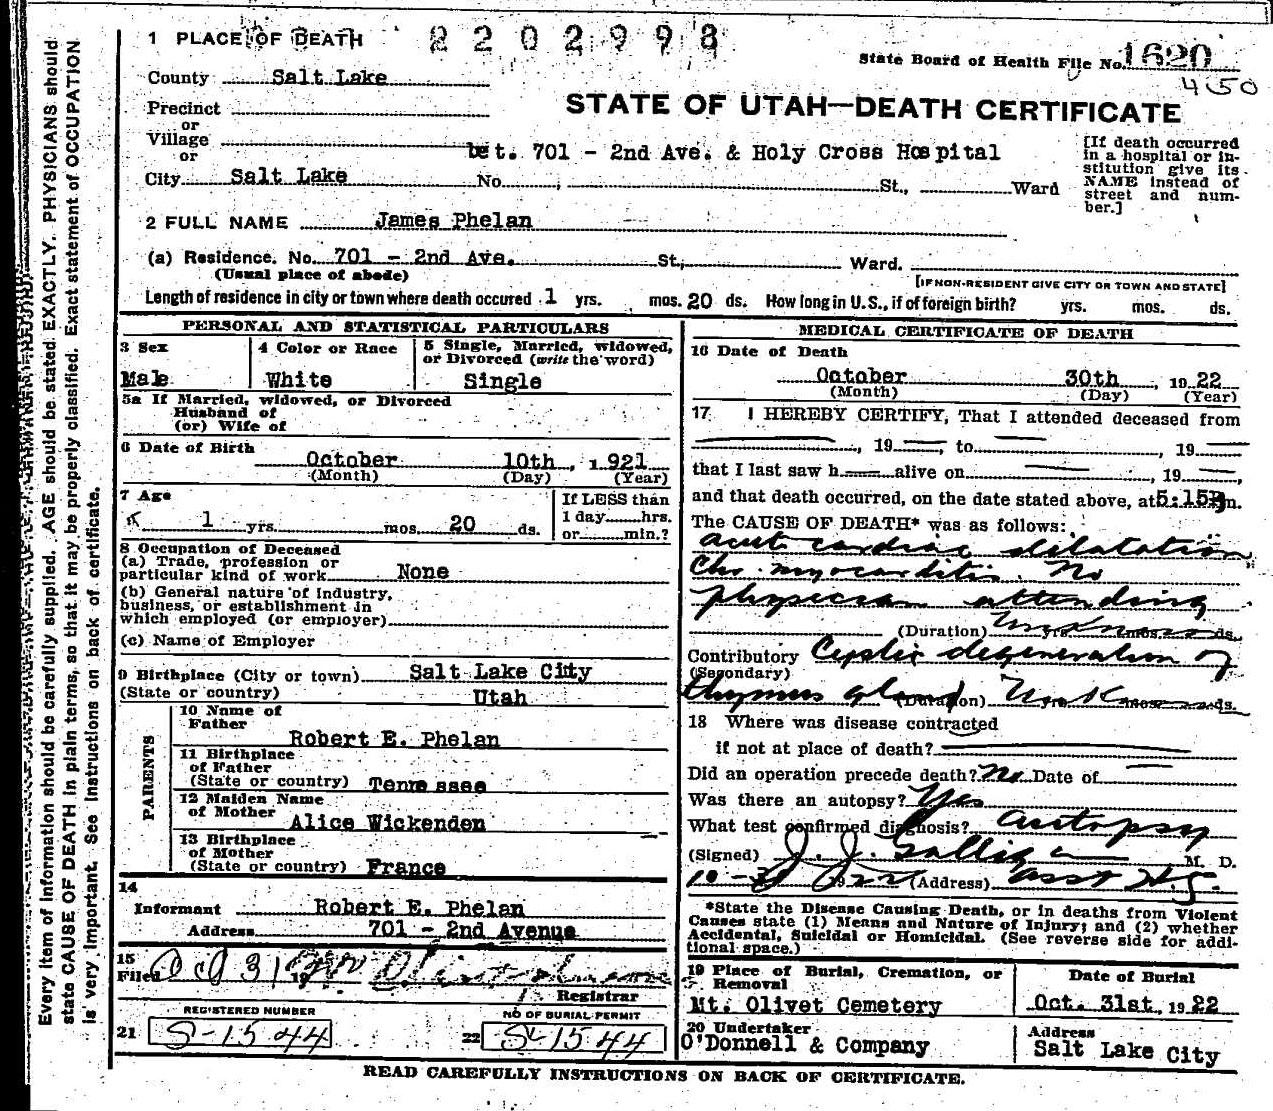 1 PLACE OF DEATH
2202998
State Board of Health File No. 1620
450
County Salt Lake
STATE OF UTAH—DEATH CERTIFICATE
Precinct
or
Village
or
bet. 701 - 2nd Ave. & Holy Cross Hospital
City Salt Lake No. St., Ward
[If death occurred
in a hospital or in-
stitution give its
NAME instead of
street and num-
ber.]
2 FULL NAME James Phelan
(a) Residence. No. 701 - 2nd Ave. St., Ward.
(Usual place of abode)
[IF NON-RESIDENT GIVE CITY OR TOWN AND STATE]
Length of residence in city or town where death occured 1 yrs. mos. 20 ds. How long in U.S., if of foreign birth? yrs. mos. ds.
PERSONAL AND STATISTICAL PARTICULARS
3 Sex
Male
4 Color or Race
White
5 Single, Married, widowed,
or Divorced (write the word)
Single
5a If Married, widowed, or Divorced
Husband of
(or) Wife of
6 Date of Birth
October 10th, 1921
(Month) (Day) (Year)
7 Age
1 yrs. mos. 20 ds.
If LESS than
1 day hrs.
or min.?
8 Occupation of Deceased
(a) Trade, profession or
particular kind of work None
(b) General nature of Industry,
business, or establishment in
which employed (or employer)
(c) Name of Employer
9 Birthplace (City or town) Salt Lake City
(State or country) Utah
PARENTS
10 Name of
Father
Robert E. Phelan
11 Birthplace
of Father
(State or country) Tennessee
12 Maiden Name
of Mother
Alice Wickenden
13 Birthplace
of Mother
(State or country) France
14
Informant Robert E. Phelan
Address 701 - 2nd Avenue
15
Filed Oct 31 19
Registrar
REGISTERED NUMBER
21 S-1544
NO OF BURIAL PERMIT
22 S-1544
MEDICAL CERTIFICATE OF DEATH
16 Date of Death
October 30th, 1922
(Month) (Day) (Year)
17 I HEREBY CERTIFY, That I attended deceased from
, 19 , to , 19
that I last saw h alive on , 19 ,
and that death occurred, on the date stated above, at 5:15 m.
The CAUSE OF DEATH* was as follows:
Acute cardiac dilatation
Chr. myocarditis. No
physician attending
(Duration) Unknown yrs. mos. ds.
Contributory Cystic degeneration of
(Secondary)
thymus gland (Duration) Unk yrs. mos. ds.
18 Where was disease contracted
if not at place of death?
Did an operation precede death? No Date of
Was there an autopsy? Yes
What test confirmed diagnosis? Autopsy
(Signed) J. J. Galligan M. D.
10-30 1922 (Address) Asst H.
*State the Disease Causing Death, or in deaths from Violent
Causes state (1) Means and Nature of Injury; and (2) whether
Accidental, Suicidal or Homicidal. (See reverse side for addi-
tional space.)
19 Place of Burial, Cremation, or
Removal
Mt. Olivet Cemetery
Date of Burial
Oct. 31st, 1922
20 Undertaker
O'Donnell & Company
Address
Salt Lake City
READ CAREFULLY INSTRUCTIONS ON BACK OF CERTIFICATE.
Every item of information should be carefully supplied. AGE should be stated EXACTLY. PHYSICIANS should
state CAUSE OF DEATH in plain terms, so that it may be properly classified. Exact statement of OCCUPATION
is very important. See instructions on back of certificate.